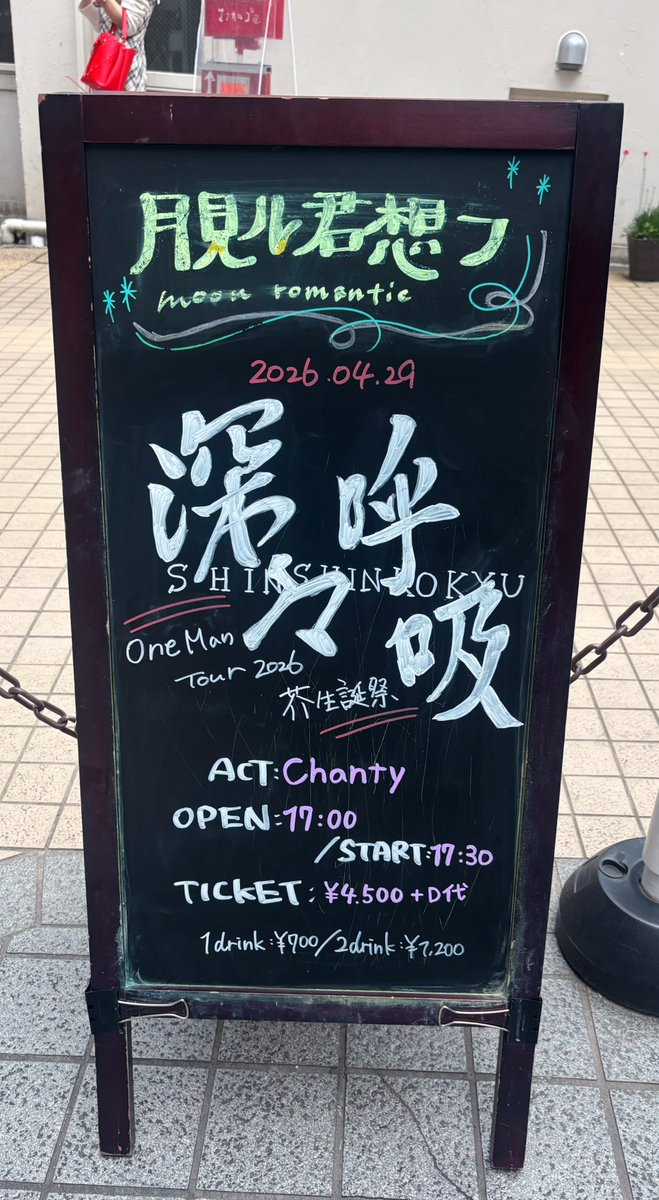 月見ル君想フ
moon romantic
2026.04.29
深々呼吸
SHINSHINKOKYU
One Man
Tour 2026
芥生誕祭
ACT:Chanty
OPEN:17:00
/START:17:30
TICKET:¥4.500+D代
1drink:¥700/2drink:¥1,200